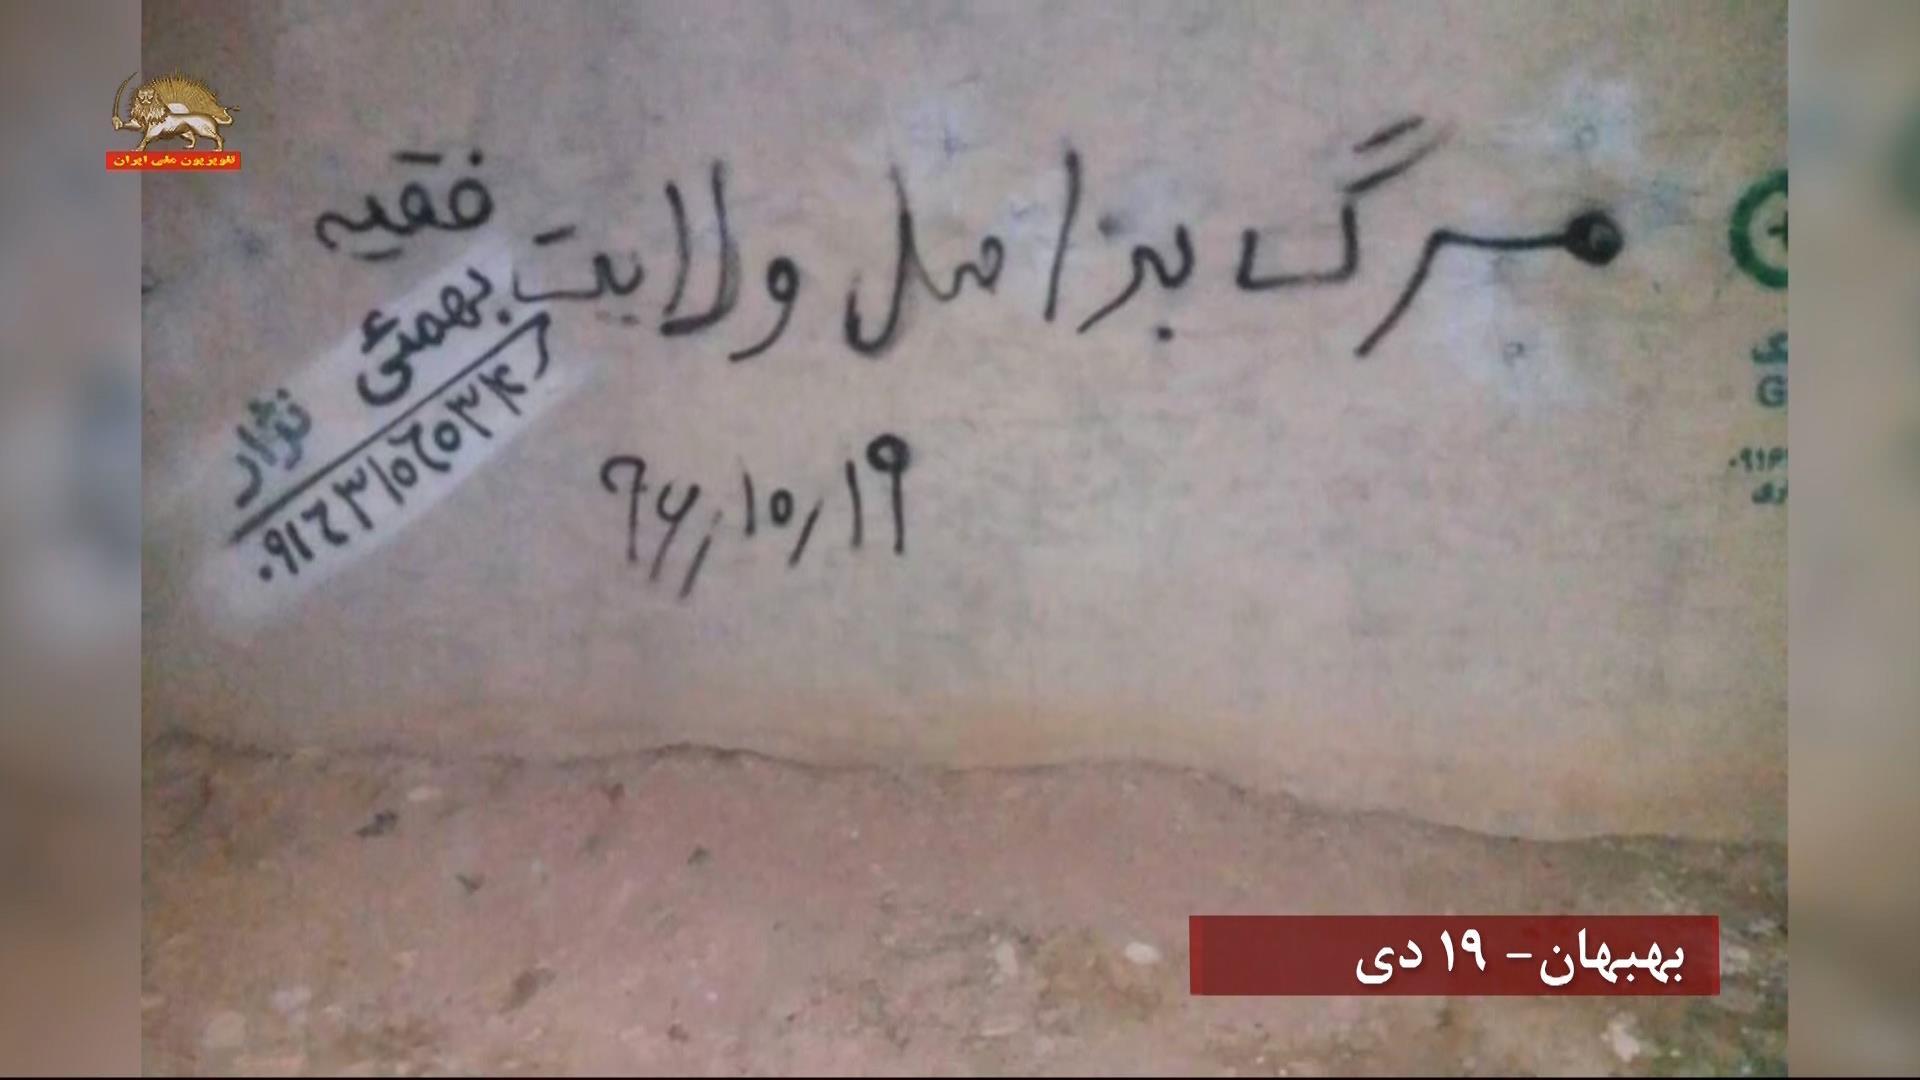 تلویزیون ملی ایران
مرگ بر اصل ولایت فقیه
۹۶٫۱۰٫۱۹
بهمئی نژاد
G
بهبهان- ۱۹ دی